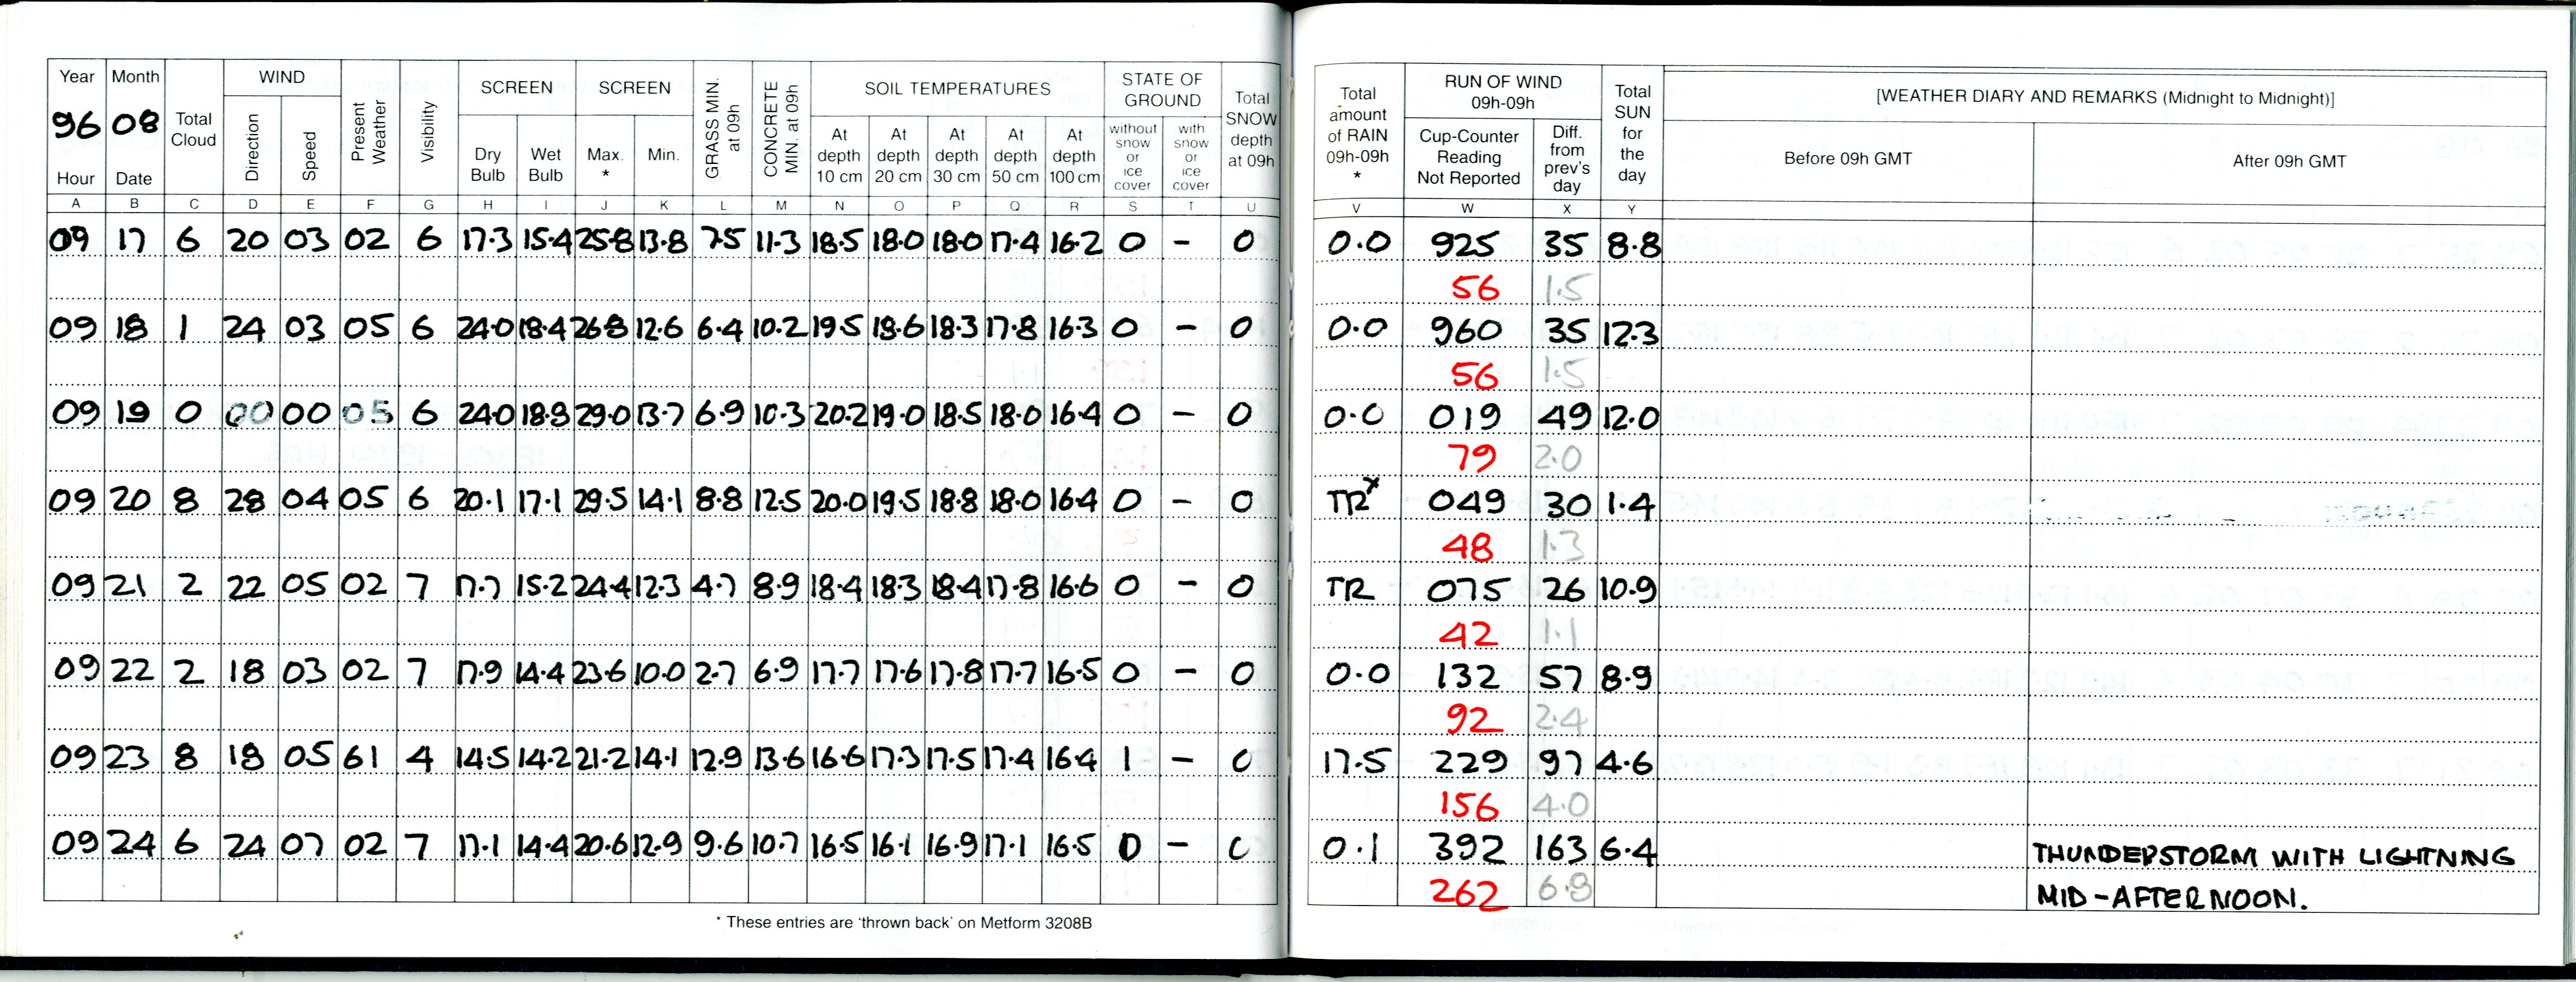 Year Month Total Cloud WIND Present Weather Visibility SCREEN SCREEN GRASS MIN. at 09h CONCRETE MIN. at 09h SOIL TEMPERATURES STATE OF GROUND Total SNOW depth at 09h Total amount of RAIN 09h-09h * RUN OF WIND 09h-09h Total SUN for the day [WEATHER DIARY AND REMARKS (Midnight to Midnight)]
96 08
Hour Date Direction Speed Dry Bulb Wet Bulb Max. * Min. At depth 10 cm At depth 20 cm At depth 30 cm At depth 50 cm At depth 100 cm without snow or ice cover with snow or ice cover Cup-Counter Reading Not Reported Diff. from prev's day Before 09h GMT After 09h GMT
A B C D E F G H I J K L M N O P Q R S T U V W X Y
09 17 6 20 03 02 6 17.3 15.4 25.8 13.8 7.5 11.3 18.5 18.0 18.0 17.4 16.2 0 - 0 0.0 925 35 8.8
56 1.5
09 18 1 24 03 05 6 24.0 18.4 26.8 12.6 6.4 10.2 19.5 18.6 18.3 17.8 16.3 0 - 0 0.0 960 35 12.3
56 1.5
09 19 0 00 00 05 6 24.0 18.8 29.0 13.7 6.9 10.3 20.2 19.0 18.5 18.0 16.4 0 - 0 0.0 019 49 12.0
79 2.0
09 20 8 28 04 05 6 20.1 17.1 29.5 14.1 8.8 12.5 20.0 19.5 18.8 18.0 16.4 0 - 0 TR* 049 30 1.4
48 1.3
09 21 2 22 05 02 7 17.7 15.2 24.4 12.3 4.7 8.9 18.4 18.3 18.4 17.8 16.6 0 - 0 TR 075 26 10.9
42 1.1
09 22 2 18 03 02 7 17.9 14.4 23.6 10.0 2.7 6.9 17.7 17.6 17.8 17.7 16.5 0 - 0 0.0 132 57 8.9
92 2.4
09 23 8 18 05 61 4 14.5 14.2 21.2 14.1 12.9 13.6 16.6 17.3 17.5 17.4 16.4 1 - 0 17.5 229 97 4.6
156 4.0
09 24 6 24 07 02 7 17.1 14.4 20.6 12.9 9.6 10.7 16.5 16.1 16.9 17.1 16.5 0 - 0 0.1 392 163 6.4 THUNDERSTORM WITH LIGHTNING
262 6.8 MID-AFTERNOON.
* These entries are 'thrown back' on Metform 3208B